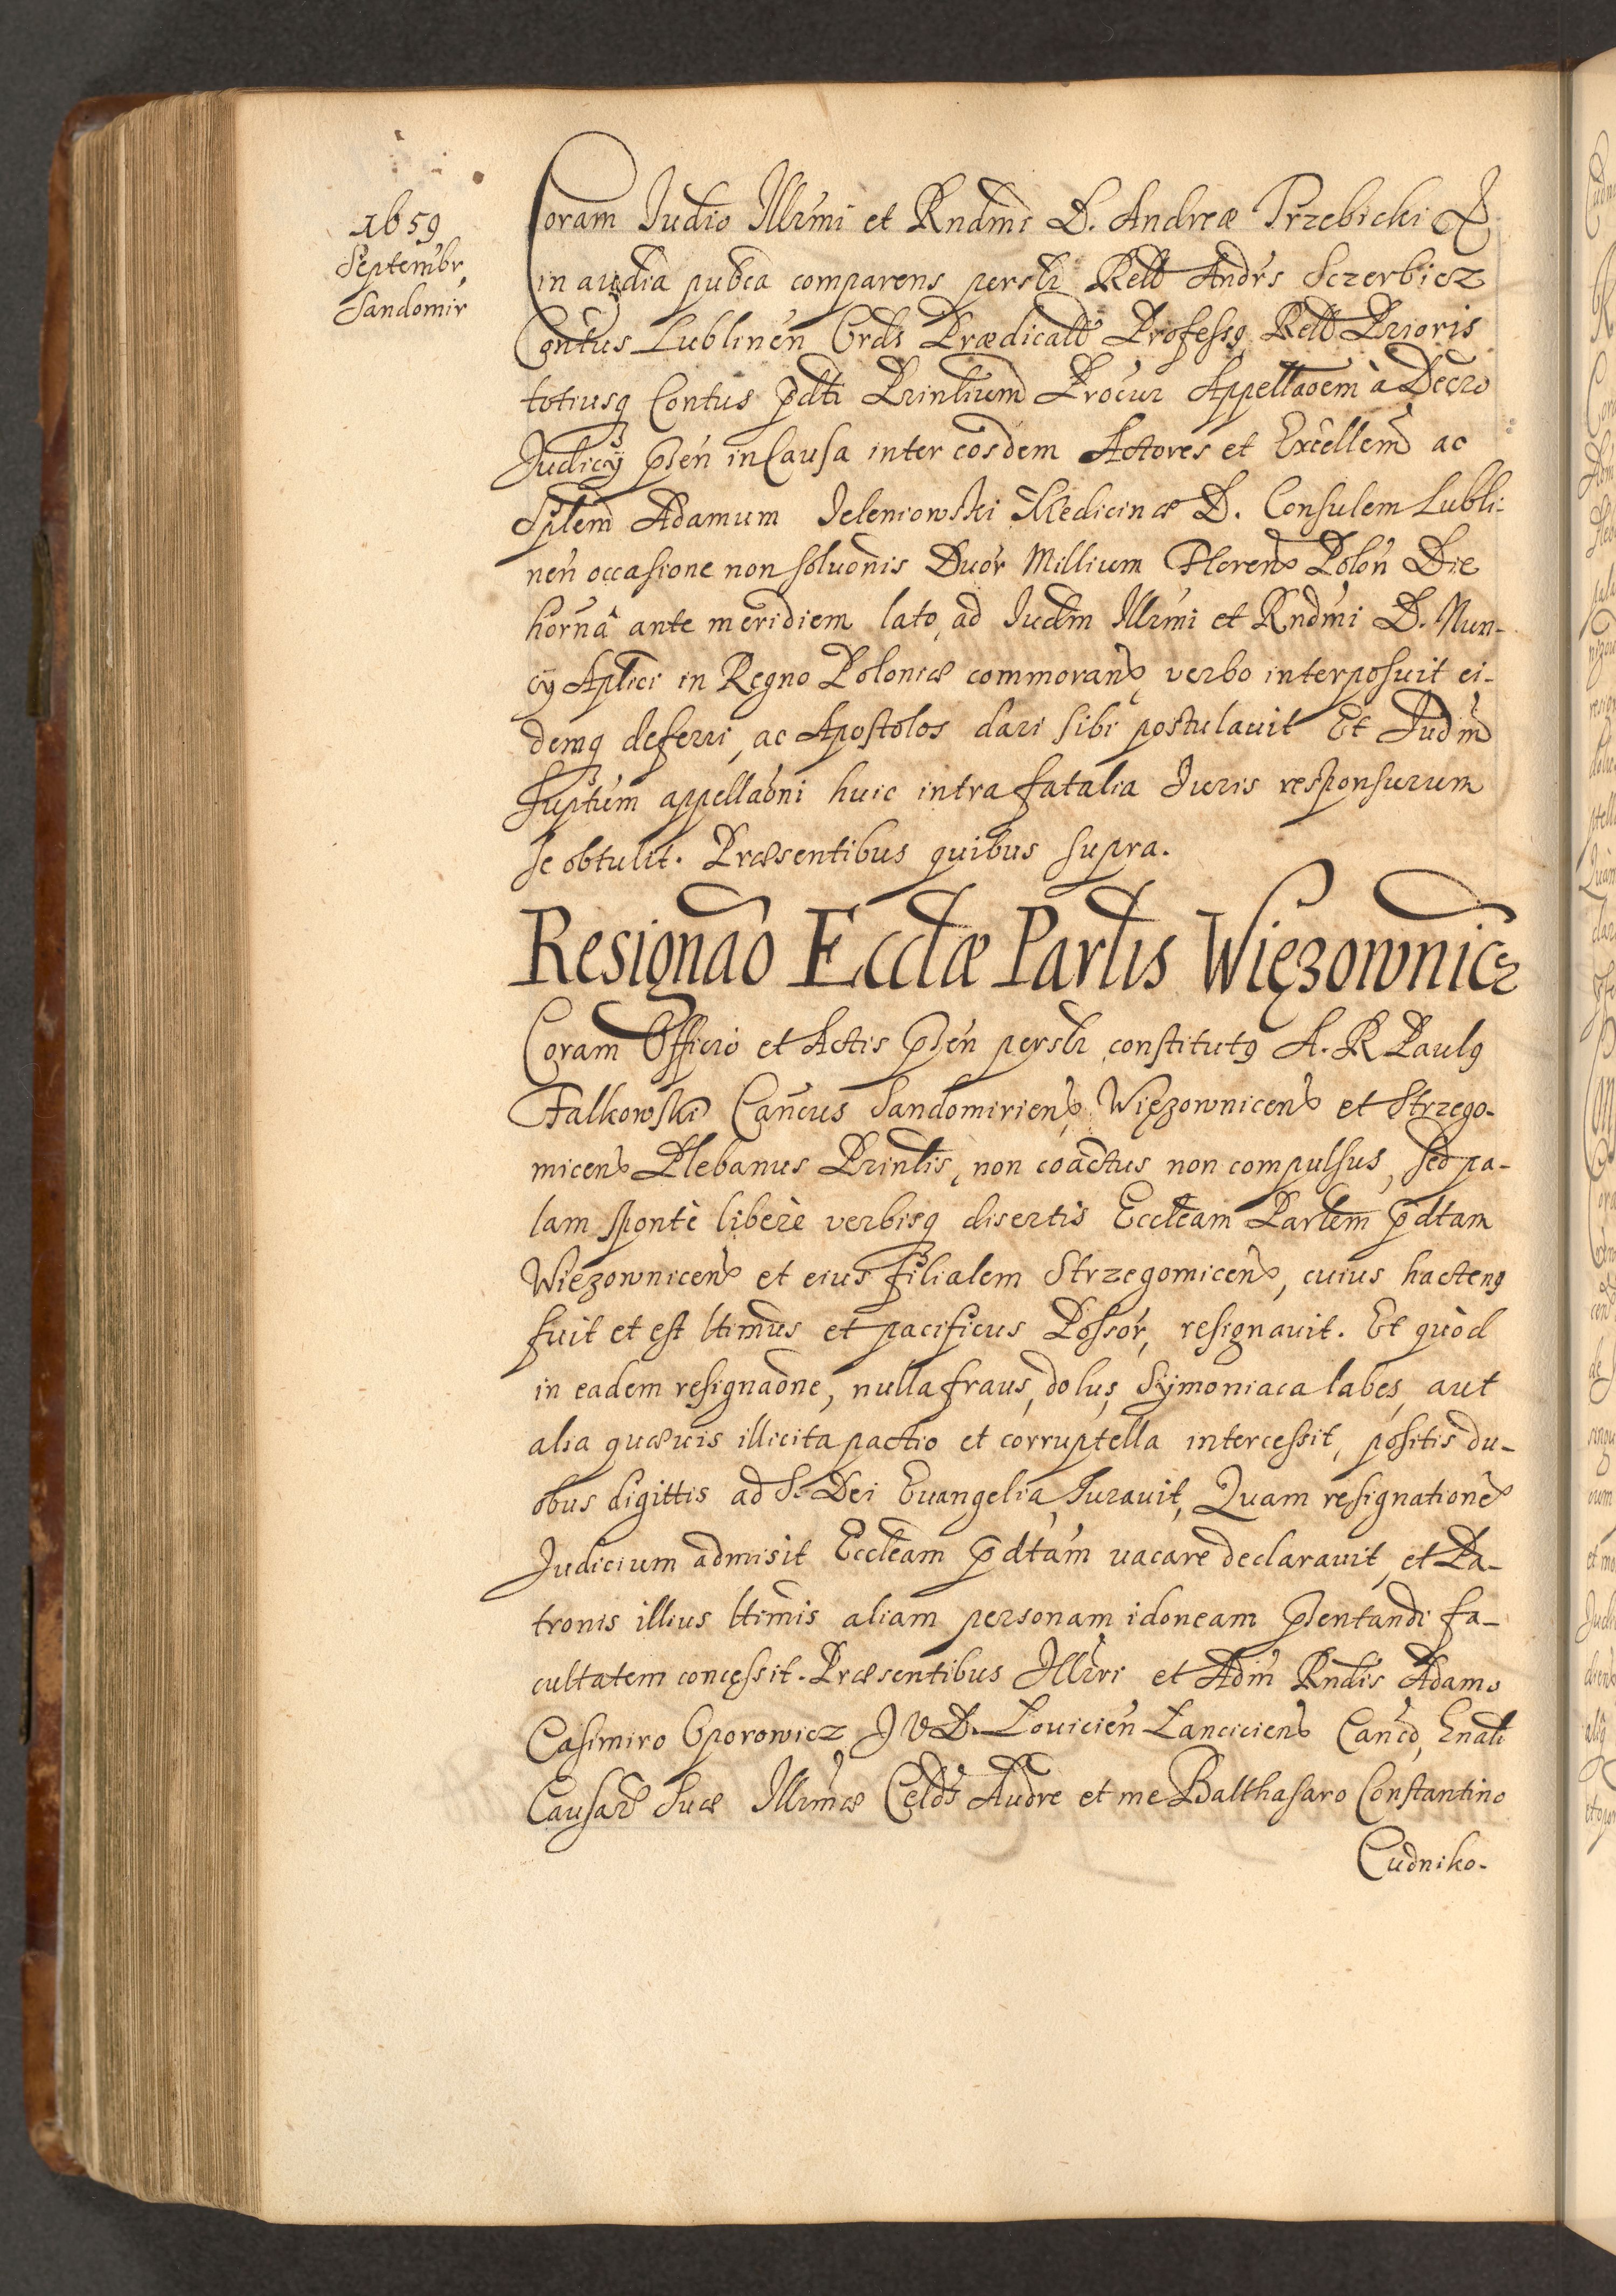 1659
Septembr
Sandomir
Coram Judio Illrmi et Rndmi D. Andreæ Trzebicki &
in audia pubca comparens persłr Relł Andrs Sczerbicz
Contus Lublinen Ordi Prædicałł Professq Relł Prioris
totiusq Contus pdti Prinlium Procur Appellaoem à Decro
Judicÿ psen in Causa inter eosdem Actores et Excellem ac
Splem Adamum Jeleniowski Medicinæ D. Consulem Lubli-
nen occasione non soluonis Duor Millium Floren Polon Die
hornâ ante meridiem lato, ad Judm Illrmi et Rndmi D. Nun-
cÿ Aplici in Regno Poloniæ commoran, verbo interposuit ei-
demq deferri, ac Apostolos dari sibi postulauit Et Judm
suptum appellaoni huic intra fatalia Juris responsurum
se obtulit. Præsentibus quibus supra.
Resignao Ecclæ Parlis Więzownicz
Coram Officio et Actis psen persłr constitutq A. R Paulq
Falkowski Cancus Sandomirien, Więzownicen et Strzego-
micen Plebanus Prinlis, non coactus non compulsus, sed pa-
lam spontè liberè verbisq disertis Eccleam Parlem pdtam
Wiezownicen et eius filialem Strzegomicen, cuius hactenq
fuit et est ltimus et pacificus Possor, resignauit. Et quòd
in eadem resignaone, nulla fraus, dolus, Sÿmoniaca labes, aut
alia quæuis illicita pactio et corruptella intercessit, positis du-
obus digittis ad S. Dei Euangelia, Jurauit, Quam resignatione
Judicium admisit Eccleam pdtam uacare declarauit, et Pa-
tronis illius ltimis aliam personam idoneam psentandi fa-
cultatem concessit. Præsentibus Illri et Adm Rndis Adamo
Casimiro Oporowicz J V D. Louicien Lancicien Canco, Gnali
Causar Suæ Illrmæ Celdis Audre et me Balthasaro Constantino
Cudniko-